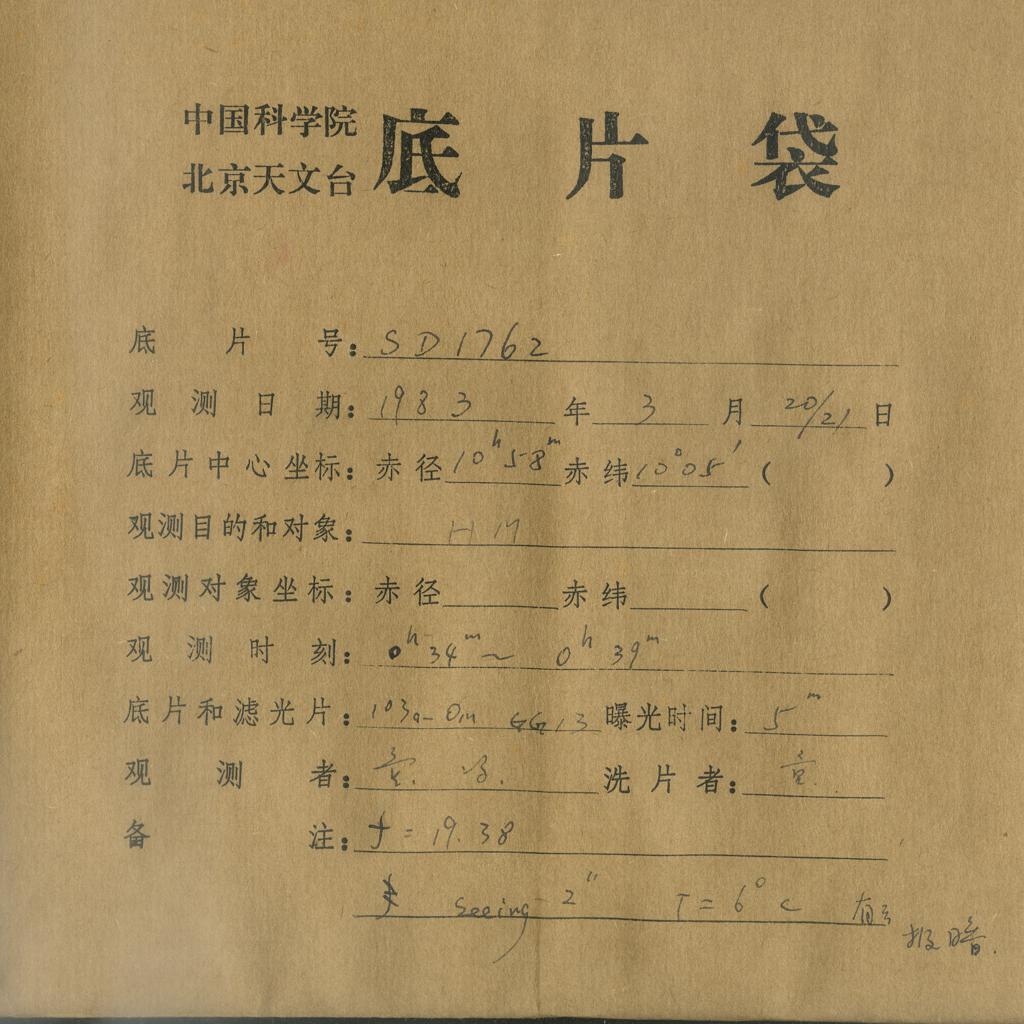 中国科学院
北京天文台
底片袋
底片号：SD1762
观测日期：1983年3月20/21日
底片中心坐标：赤径10h58m赤纬10°05′（ ）
观测目的和对象：HM
观测对象坐标：赤径 赤纬 （ ）
观测时刻：0h34m～0h39m
底片和滤光片：103a-Om GG13 曝光时间：5m
观测者：童. 冯. 洗片者：童.
备注：f=19.38
seeing 2″ T=6°C 有云
报暗.